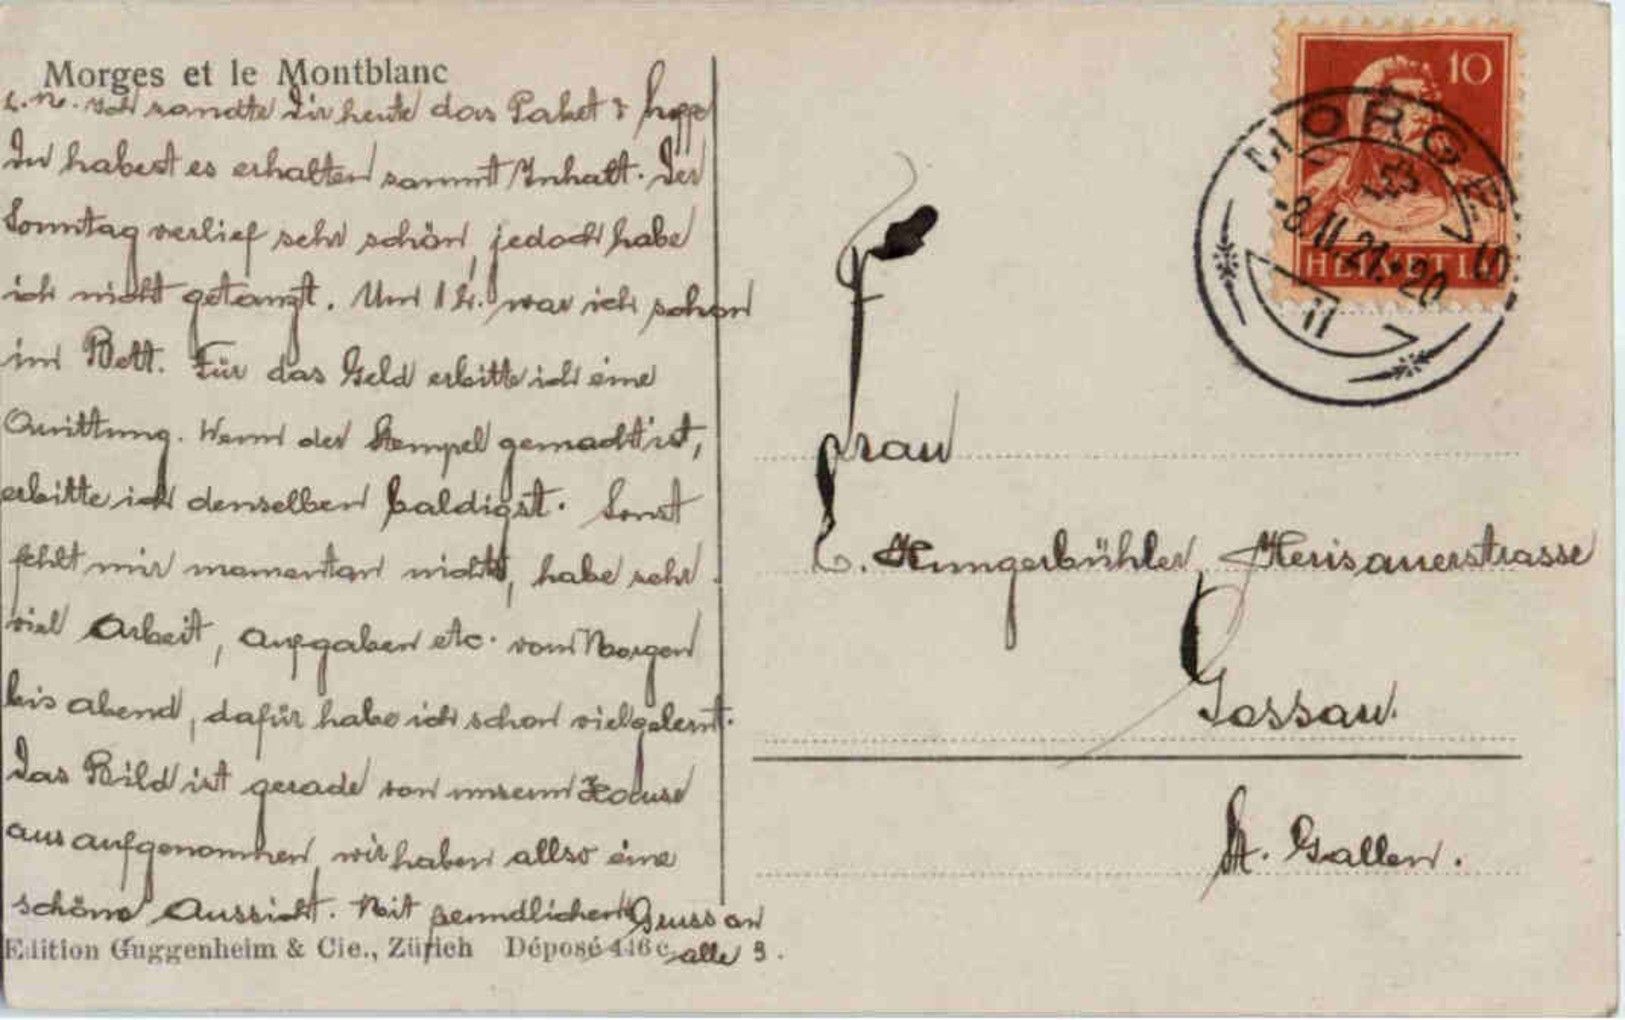 Morges et le Montblanc
L. M. Ich sandte Dir heute das Paket & hoffe
Du habest es erhalten sammt Inhalt. Der
Sonntag verlief sehr schön, jedoch habe
ich nicht getanzt. Um 1 h. war ich schon
im Bett. Für das Geld erbitte ich eine
Quittung. Wenn der Stempel gemacht ist,
erbitte ich denselben baldigst. Sonst
fehlt mir momentan nichts, habe sehr
viel Arbeit, Aufgaben etc. vom Morgen
bis abend, dafür habe ich schon viel gelernt.
Das Bild ist gerade von unserm Hause
aus aufgenommen, wir haben allso eine
schöne Aussicht. Mit freundlichen Gruss an
alle
Edition Guggenheim & Cie., Zürich Déposé 446 c
10
HELVETIA
MORGES
-8.II.21.-20
Frau
E. Hungerbühler, Herisauerstrasse
Gossau.
St. Gallen.